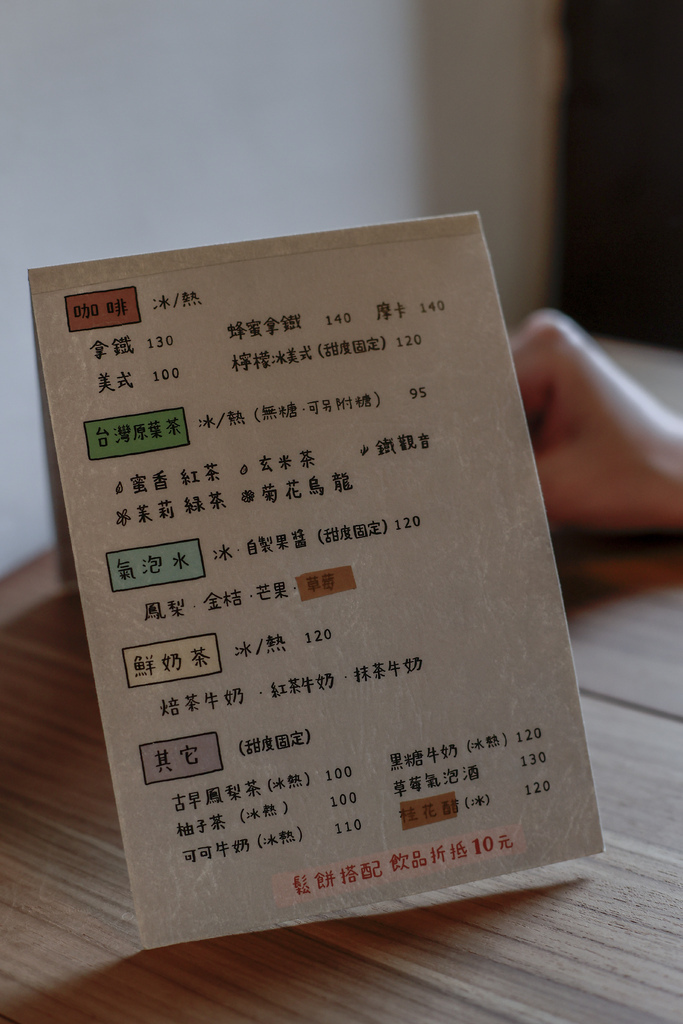 咖啡 冰/熱
拿鐵 130 蜂蜜拿鐵 140 摩卡 140
美式 100 檸檬冰美式(甜度固定) 120
台灣原葉茶 冰/熱 (無糖·可另附糖) 95
蜜香紅茶 玄米茶 鐵觀音
茉莉綠茶 菊花烏龍
氣泡水 冰·自製果醬 (甜度固定) 120
鳳梨·金桔·芒果·草莓
鮮奶茶 冰/熱 120
焙茶牛奶·紅茶牛奶·抹茶牛奶
其它 (甜度固定)
古早鳳梨茶(冰熱) 100 黑糖牛奶(冰熱) 120
柚子茶(冰熱) 100 草莓氣泡酒 130
可可牛奶(冰熱) 110 桂花醋(冰) 120
鬆餅搭配 飲品折抵10元